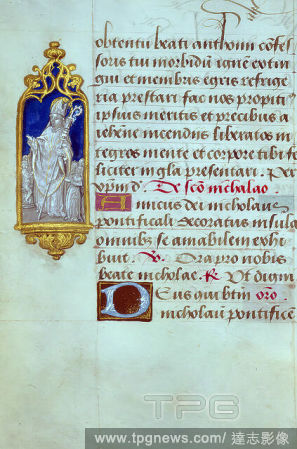 obtentu beati anthonii cōfes
soris tui morbidū ignē extin
gui et membris egris refrige
ria prestari fac nos propiti
ipsius meritis et precibus a
iehene incendiis liberatos in
tegros mente et corpore tibi fe
liciter in gl̄a presentari. Per
xp̄m d. De sc̄o nicholao.
Amicus dei nicholaus
pontificali decoratus insula
omnibz se amabilem exhi
buit. Ora pro nobis
beate nicholae. Ut digni
Deus qui btm oro.
nicholaū pontificē
TPG
www.tpgnews.com / 達志影像